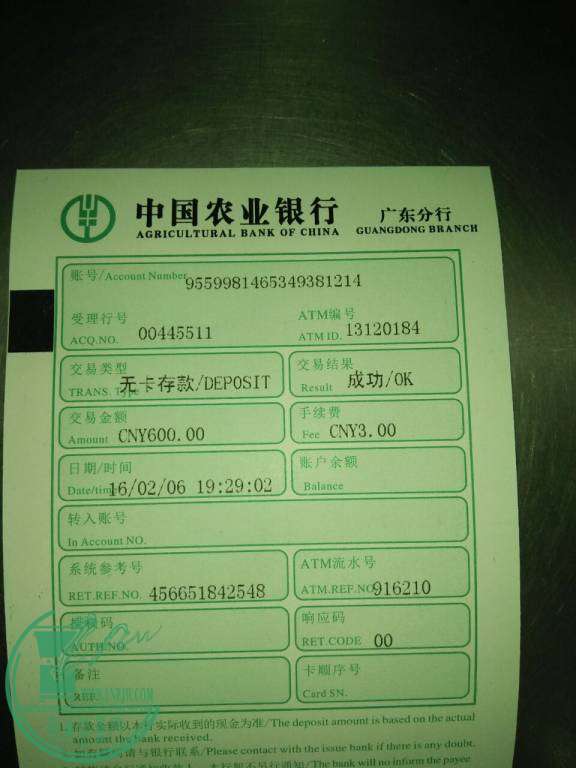 中国农业银行 广东分行
AGRICULTURAL BANK OF CHINA GUANGDONG BRANCH
账号/Account Number 9559981465349381214
受理行号 ATM编号
ACQ.NO. 00445511 ATM ID. 13120184
交易类型 交易结果
TRANS. Type 无卡存款/DEPOSIT Result 成功/OK
交易金额 手续费
Amount CNY600.00 Fee CNY3.00
日期/时间 账户余额
Date/time 16/02/06 19:29:02 Balance
转入账号
In Account NO.
系统参考号 ATM流水号
RET.REF.NO. 456651842548 ATM.REF.NO 916210
授权码 响应码
AUTH.NO. RET.CODE 00
备注 卡顺序号
REF. Card SN.
1. 存款金额以本行实际收到的现金为准/The deposit amount is based on the actual
amount the bank received.
请与银行联系/Please contact with the issue bank if there is any doubt.
本行恕不另行通知/The bank will no inform the payee